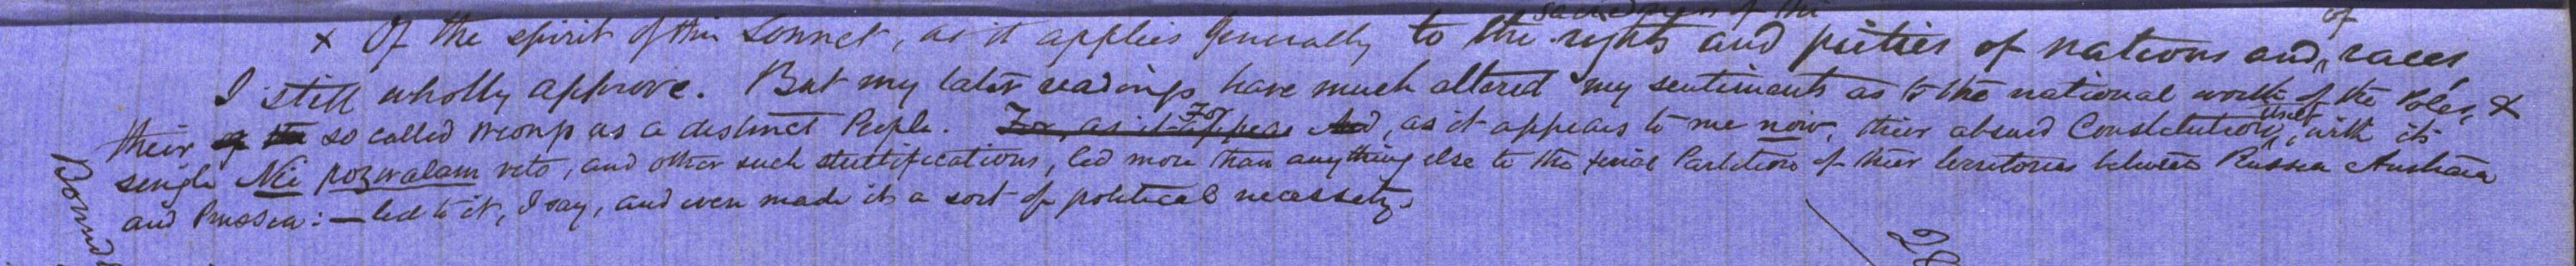 sacredness of the of
x Of the spirit of this Sonnet, as it applies generally to the rights and pieties of nations and races,
I still wholly approve. But my later readings have much altered my sentiments as to the national worth of the Poles, &
their so called wrongs as a distinct People. For, as it appears And For, as it appears to me now, their absurd Constitution itself, with its
single Nie pozwalam veto, and other such stultifications, led more than anything else to the final Partition of their territories between Russia Austria
and Prussia: — led to it, I say, and even made it a sort of political necessity.
Bound